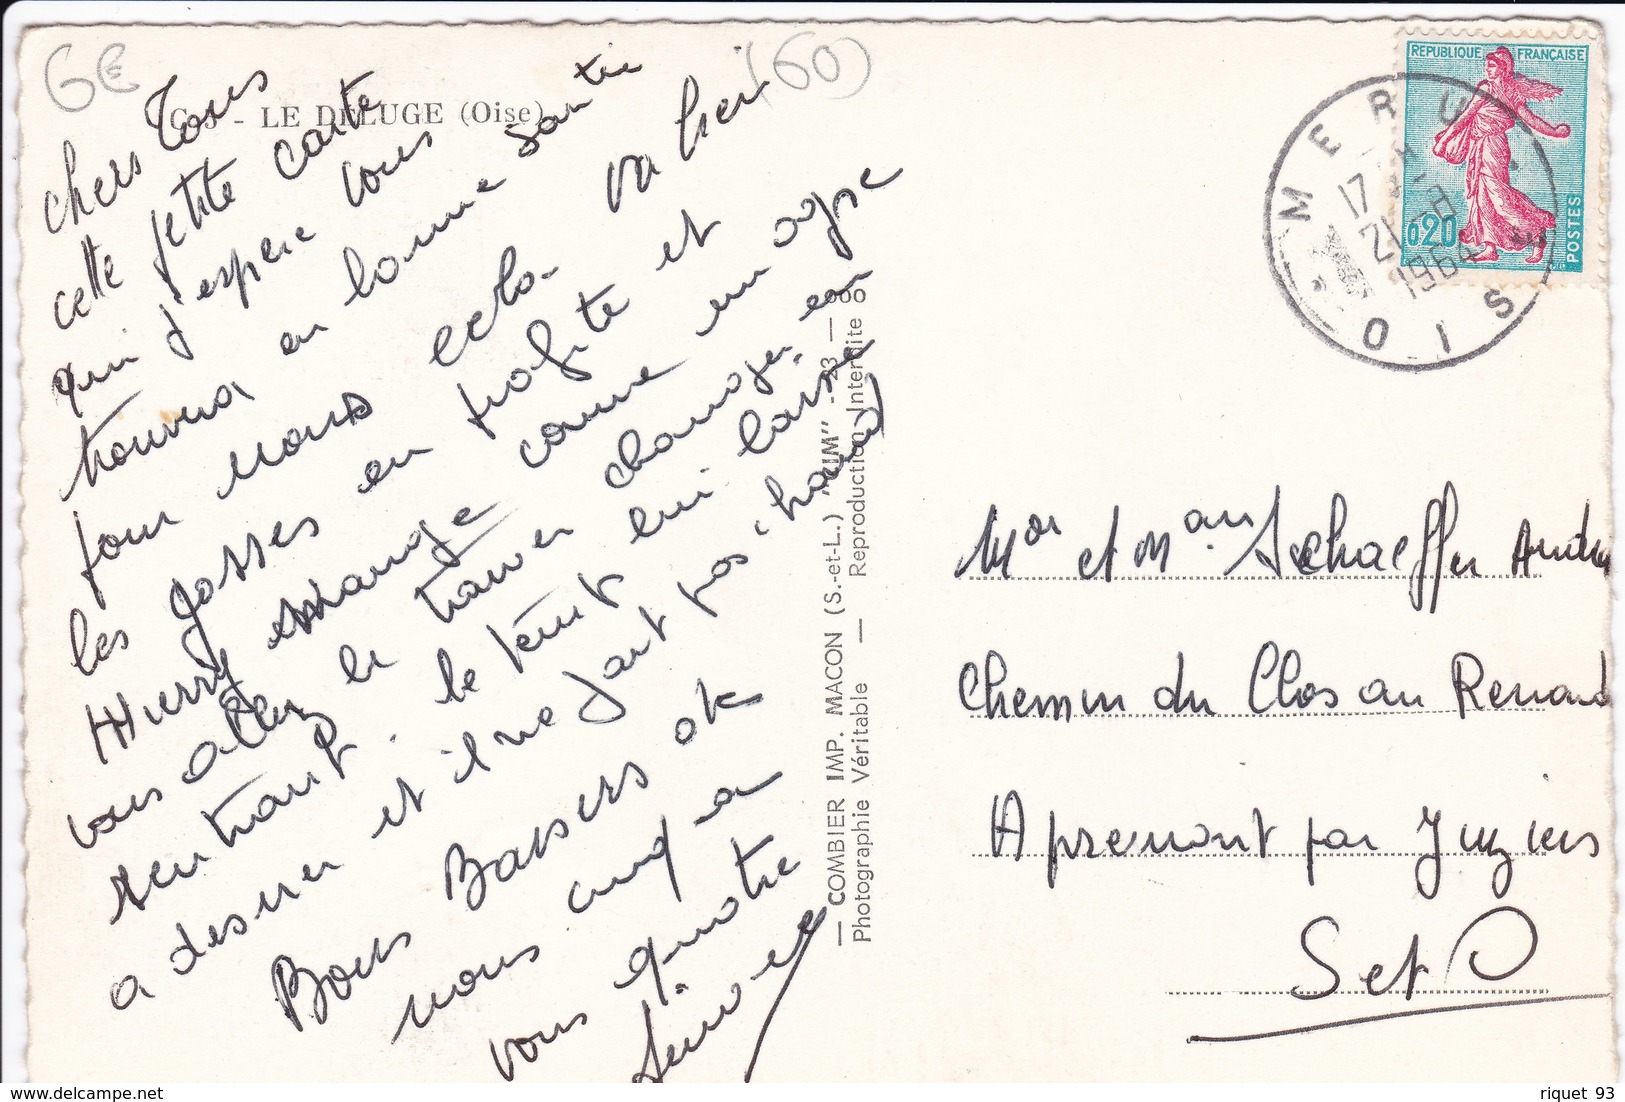 6€
(60)
- LE DELUGE (Oise)
chers Tous
cette petite carte
qui j'espère vous
trouvera en bonne santé
pour nous cela
va bien
les gosses en profite et
Thierry mange comme un ogre
vous allez le trouver changer en
rentrant. le temps lui laisse
a desirer et il ne fait pas chaud
Bons Baisers de
nous cinq a
vous quatre
— COMBIER IMP. MACON (S.-et-L.) "CIM" - 23 — 000
Photographie Véritable — Reproduction Interdite
REPUBLIQUE FRANÇAISE
0,20
POSTES
MERU
OISE
17 H
21 -8
1964
Mr et Mme Schaeffer André
Chemin du Clos au Renard
Apremont par Juziers
S et O
riquet 93